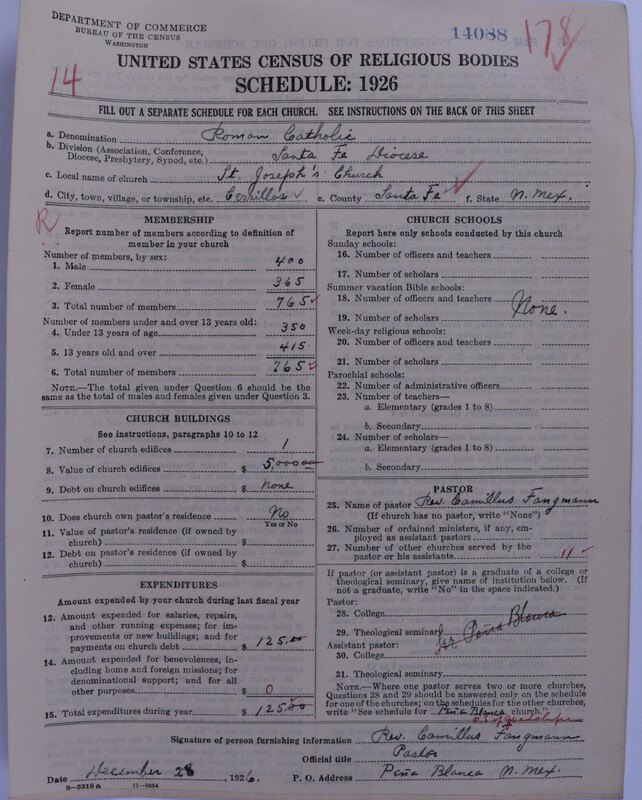 DEPARTMENT OF COMMERCE
BUREAU OF THE CENSUS
WASHINGTON
14088
178
14
UNITED STATES CENSUS OF RELIGIOUS BODIES
SCHEDULE: 1926
FILL OUT A SEPARATE SCHEDULE FOR EACH CHURCH. SEE INSTRUCTIONS ON THE BACK OF THIS SHEET
a. Denomination Roman Catholic
b. Division (Association, Conference,
Diocese, Presbytery, Synod, etc.) Santa Fe Diocese
c. Local name of church St. Joseph's Church
d. City, town, village, or township, etc. Cerrillos e. County Santa Fe f. State N. Mex.
R
MEMBERSHIP
Report number of members according to definition of
member in your church
Number of members, by sex:
1. Male 400
2. Female 365
3. Total number of members 765
Number of members under and over 13 years old:
4. Under 13 years of age 350
5. 13 years old and over 415
6. Total number of members 765
NOTE.—The total given under Question 6 should be the
same as the total of males and females given under Question 3.
CHURCH BUILDINGS
See instructions, paragraphs 10 to 12
7. Number of church edifices 1
8. Value of church edifices $ 5,000.00
9. Debt on church edifices $ None
10. Does church own pastor's residence No
Yes or No
11. Value of pastor's residence (if owned by
church) $
12. Debt on pastor's residence (if owned by
church) $
EXPENDITURES
Amount expended by your church during last fiscal year
13. Amount expended for salaries, repairs,
and other running expenses; for im-
provements or new buildings; and for
payments on church debt $ 125.00
14. Amount expended for benevolences, in-
cluding home and foreign missions; for
denominational support; and for all
other purposes $ 0
15. Total expenditures during year $ 125.00
CHURCH SCHOOLS
Report here only schools conducted by this church
Sunday schools:
16. Number of officers and teachers
17. Number of scholars
Summer vacation Bible schools:
18. Number of officers and teachers
None.
19. Number of scholars
Week-day religious schools:
20. Number of officers and teachers
21. Number of scholars
Parochial schools:
22. Number of administrative officers
23. Number of teachers—
a. Elementary (grades 1 to 8)
b. Secondary
24. Number of scholars—
a. Elementary (grades 1 to 8)
b. Secondary
PASTOR
25. Name of pastor Rev. Camillus Fangmann
(If church has no pastor, write "None")
26. Number of ordained ministers, if any, em-
ployed as assistant pastors
27. Number of other churches served by the
pastor or his assistants 11
If pastor (or assistant pastor) is a graduate of a college or
theological seminary, give name of institution below. (If
not a graduate, write "No" in the space indicated.)
Pastor:
28. College
29. Theological seminary for Peña Blanca
Assistant pastor:
30. College
31. Theological seminary
NOTE.—Where one pastor serves two or more churches,
Questions 28 and 29 should be answered only on the schedule
for one of the churches; on the schedules for the other churches,
write "See schedule for Peña Blanca church."
of Guadalupe
Signature of person furnishing information Rev. Camillus Fangmann
Official title Pastor
Date December 28, 1926. P. O. Address Peña Blanca N. Mex.
8—5518a 11—9034